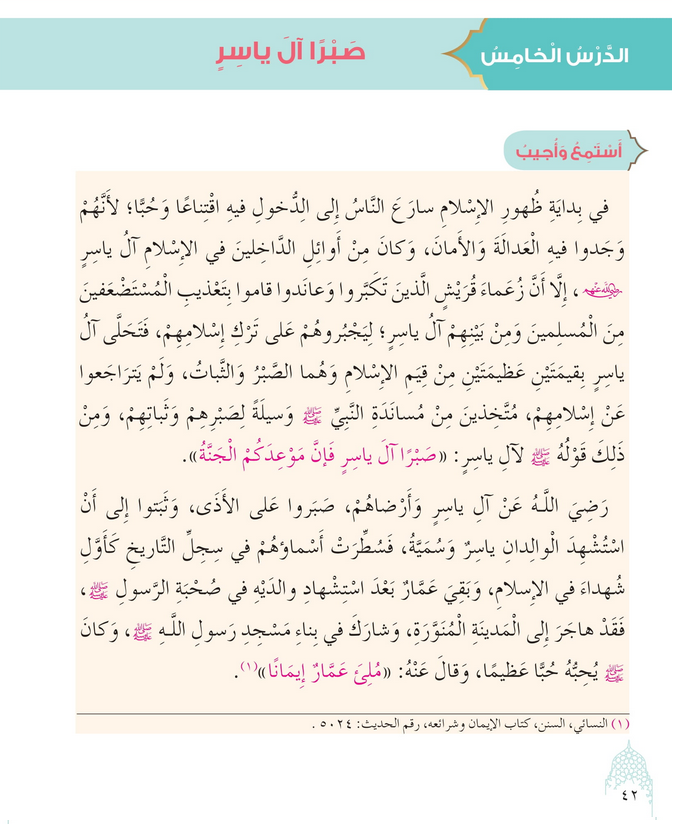 الدَّرْسُ الْخامِسُ
صَبْرًا آلَ ياسِرٍ
أَسْتَمِعُ وَأُجيبُ
في بِدايَةِ ظُهورِ الإِسْلامِ سارَعَ النَّاسُ إِلى الدُّخولِ فيهِ اقْتِناعًا وَحُبًّا؛ لأَنَّهُمْ
وَجَدوا فيهِ الْعَدالَةَ وَالأَمانَ، وَكانَ مِنْ أَوائِلِ الدَّاخِلينَ في الإِسْلامِ آلُ ياسِرٍ
رضي الله عنهم، إِلَّا أَنَّ زُعَماءَ قُرَيْشٍ الَّذينَ تَكَبَّروا وَعانَدوا قاموا بِتَعْذيبِ الْمُسْتَضْعَفينَ
مِنَ الْمُسلِمينَ وَمِنْ بَيْنِهِمْ آلُ ياسِرٍ؛ لِيَجْبُروهُمْ عَلى تَرْكِ إِسْلامِهِمْ، فَتَحَلَّى آلُ
ياسِرٍ بِقيمَتَيْنِ عَظيمَتَيْنِ مِنْ قِيَمِ الإِسْلامِ وَهُما الصَّبْرُ وَالثَّباتُ، وَلَمْ يَتَراجَعوا
عَنْ إِسْلامِهِمْ، مُتَّخِذينَ مِنْ مُسانَدَةِ النَّبِيِّ ﷺ وَسيلَةً لِصَبْرِهِمْ وَثَباتِهِمْ، وَمِنْ
ذَلِكَ قَوْلُهُ ﷺ لآلِ ياسِرٍ: «صَبْرًا آلَ ياسِرٍ فَإِنَّ مَوْعِدَكُمْ الْجَنَّةُ».
رَضِيَ اللَّـهُ عَنْ آلِ ياسِرٍ وَأَرْضاهُمْ، صَبَروا عَلى الأَذَى، وَثَبَتوا إِلى أَنْ
اسْتُشْهِدَ الْوالِدانِ ياسِرٌ وَسُمَيَّةُ، فَسُطِّرَتْ أَسْماؤهُمْ في سِجِلِّ التَّاريخِ كَأَوَّلِ
شُهداءَ في الإِسلامِ، وَبَقِيَ عَمَّارٌ بَعْدَ اسْتِشْهادِ والدَيْهِ في صُحْبَةِ الرَّسولِ ﷺ،
فَقَدْ هاجَرَ إِلى الْمَدينَةِ الْمُنَوَّرَةِ، وَشارَكَ في بِناءِ مَسْجِدِ رَسولِ اللَّـهِ ﷺ، وَكانَ
ﷺ يُحِبُّهُ حُبًّا عَظيمًا، وَقالَ عَنْهُ: «مُلِئَ عَمَّارٌ إيمَانًا»(١).
(١) النسائي، السنن، كتاب الإيمان وشرائعه، رقم الحديث: ٥٠٢٤ .
٤٢